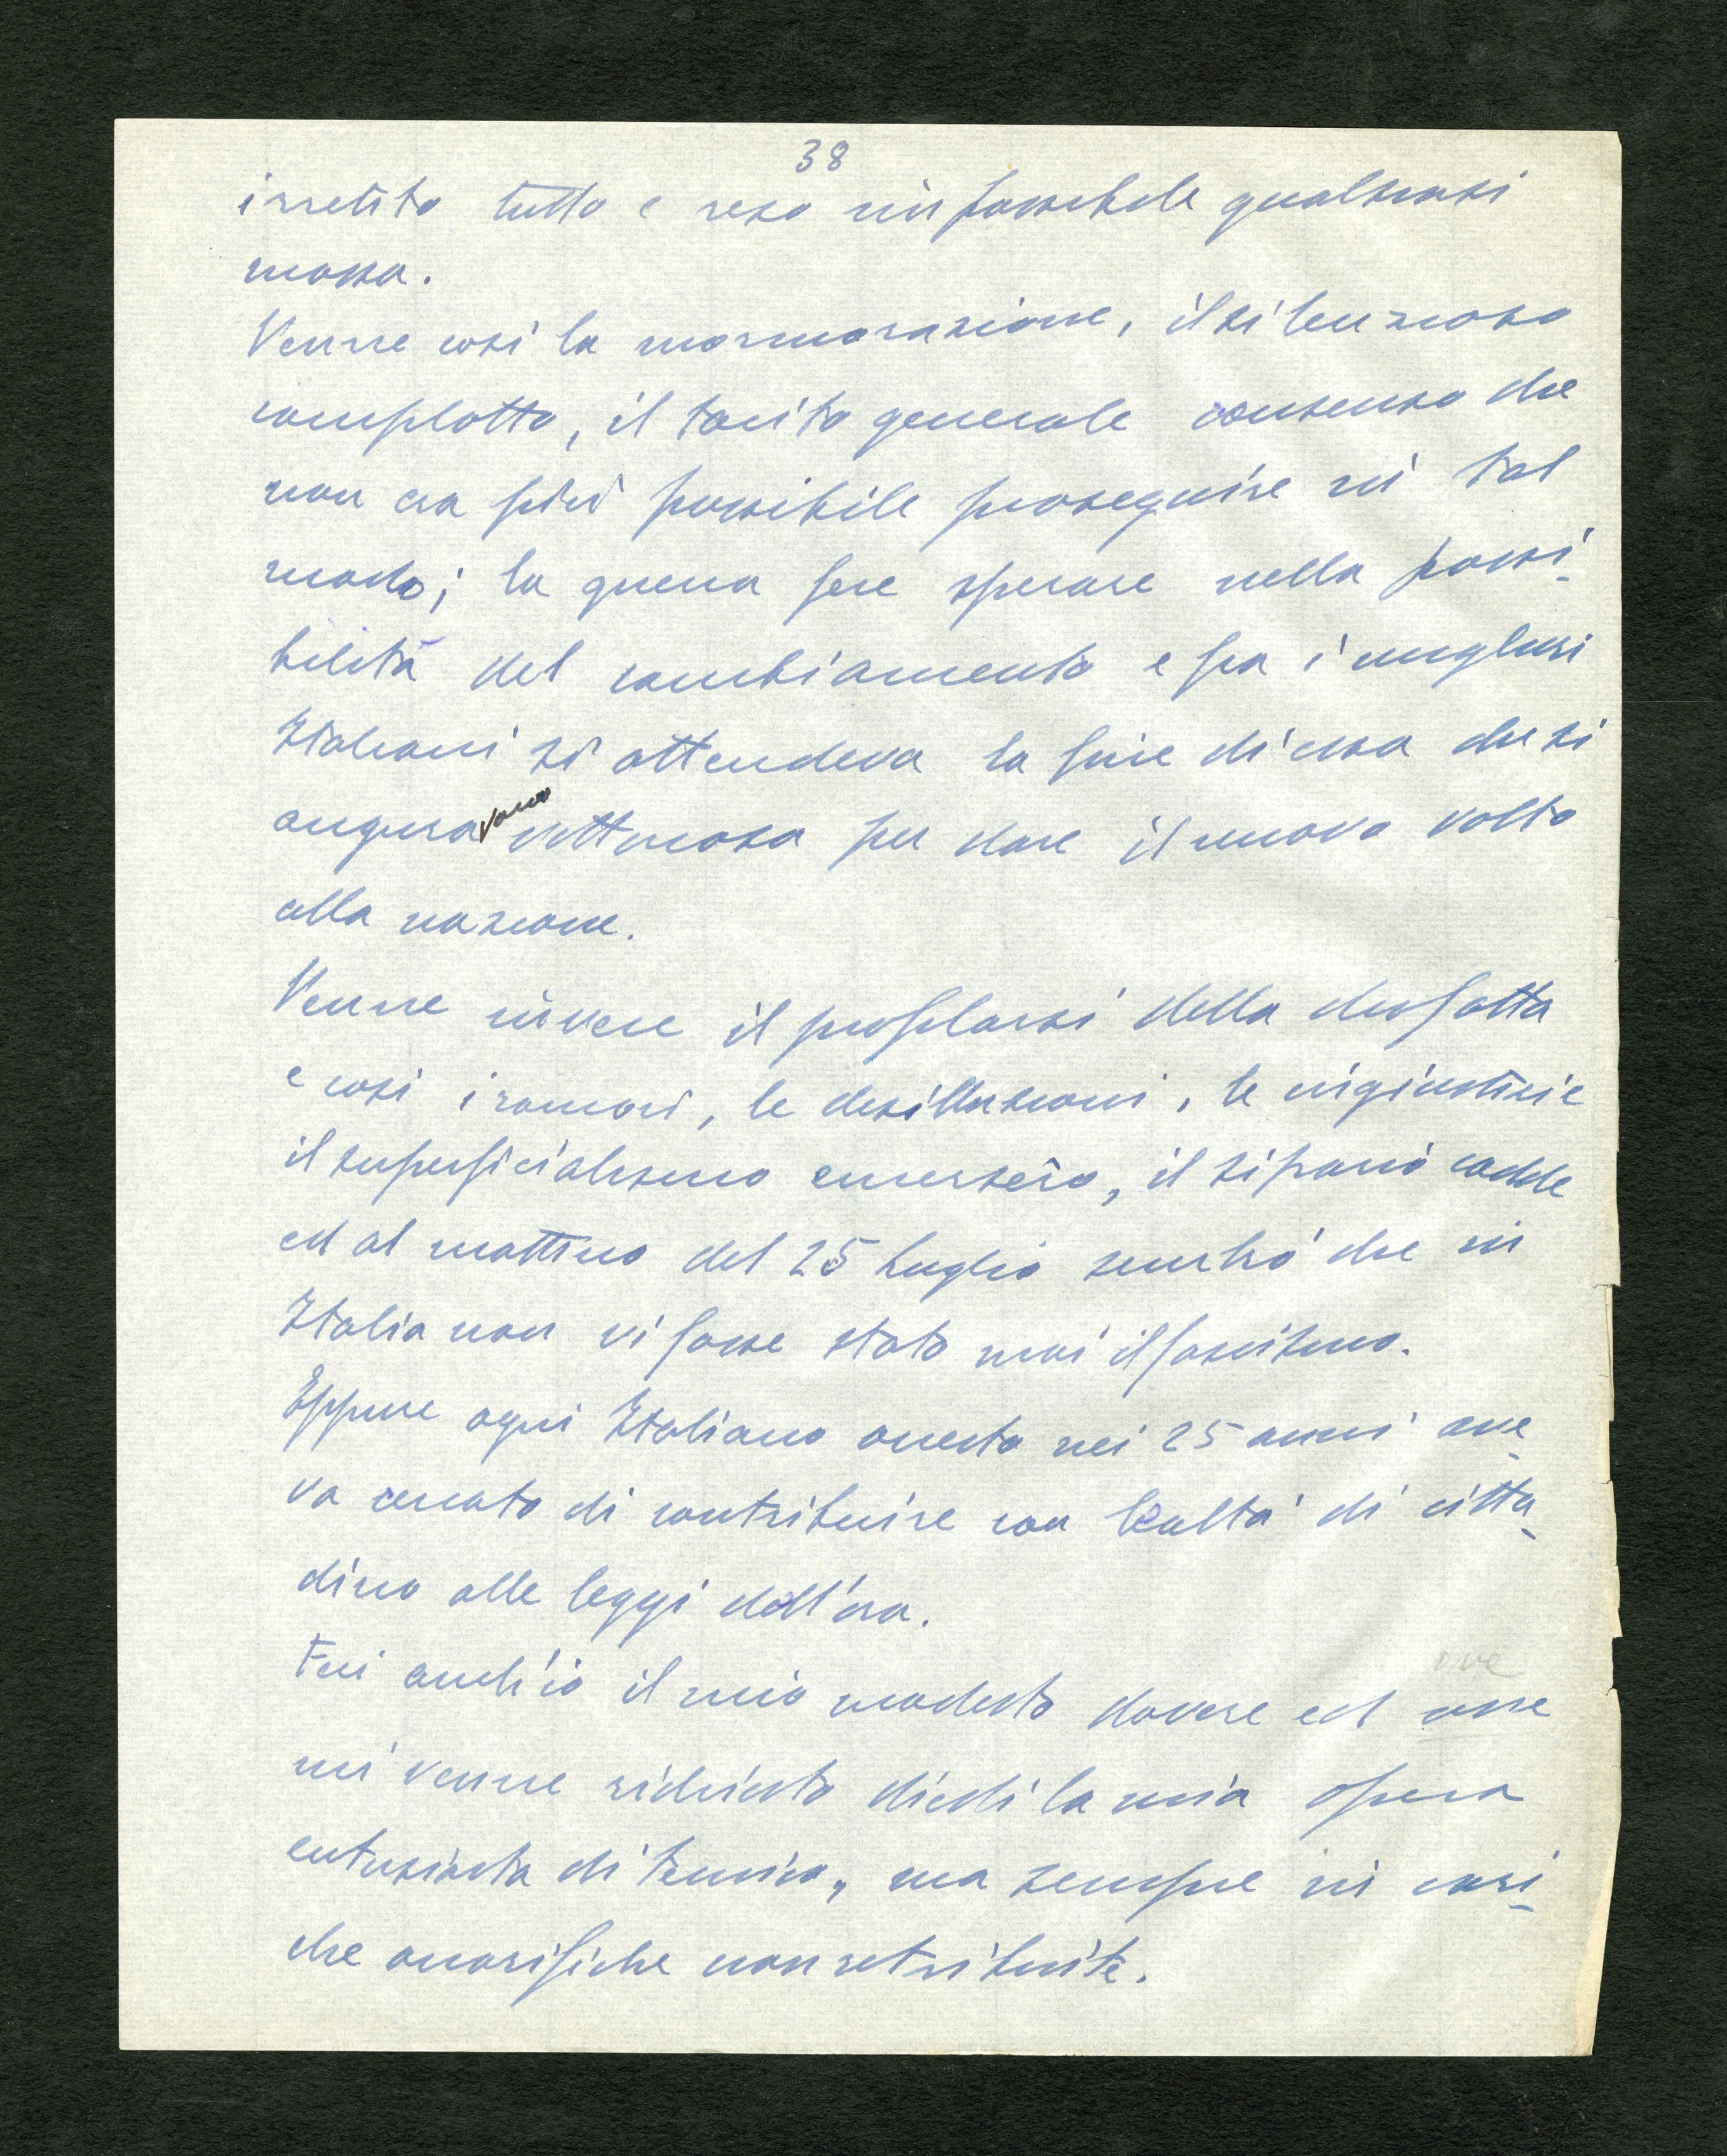 38
irretito tutto e reso impossibile qualsiasi
mossa.
Venne così la mormorazione, il silenzioso
complotto, il tacito generale consenso che
non era più possibile proseguire in tal
modo; la guerra fece sperare nella possi-
bilità del cambiamento e fra i migliori
Italiani si attendeva la fine di essa che si
auguravano vittoriosa per dare il nuovo volto
alla nazione.
Venne invece il profilarsi della disfatta
e così i rancori, le desillusioni, le ingiustizie
il superficialismo emersero, il sipario cadde
ed al mattino del 25 Luglio sembrò che in
Italia non vi fosse stato mai il fascismo.
Eppure ogni Italiano onesto nei 25 anni ave-
va cercato di contribuire con lealtà di citta-
dino alle leggi dell'ora.
ove
Feci anch'io il mio modesto dovere ed
mi venne richiesto diedi la mia opera
entusiasta di tecnico, ma sempre in cari-
che onorifiche non retribuite.